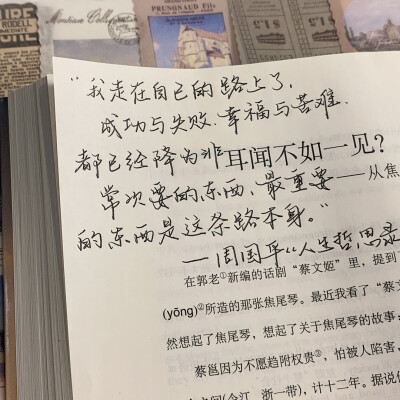 PRUNONAUD Fils
"我走在自己的路上了,
成功与失败、幸福与苦难、
都已经降为非
耳闻不如一见?
常次要的东西,最重要
——从焦
的东西是这条路本身。"
—周国平《人生哲思录
在郭老①新编的话剧"蔡文姬"里,提到了
(yōng)②所造的那张焦尾琴。最近我看了"蔡文
然想起了焦尾琴,想起了关于焦尾琴的故事;
蔡邕因为不愿趋附权贵③,怕被人陷害,
(今江、浙一带),计十二年。据说